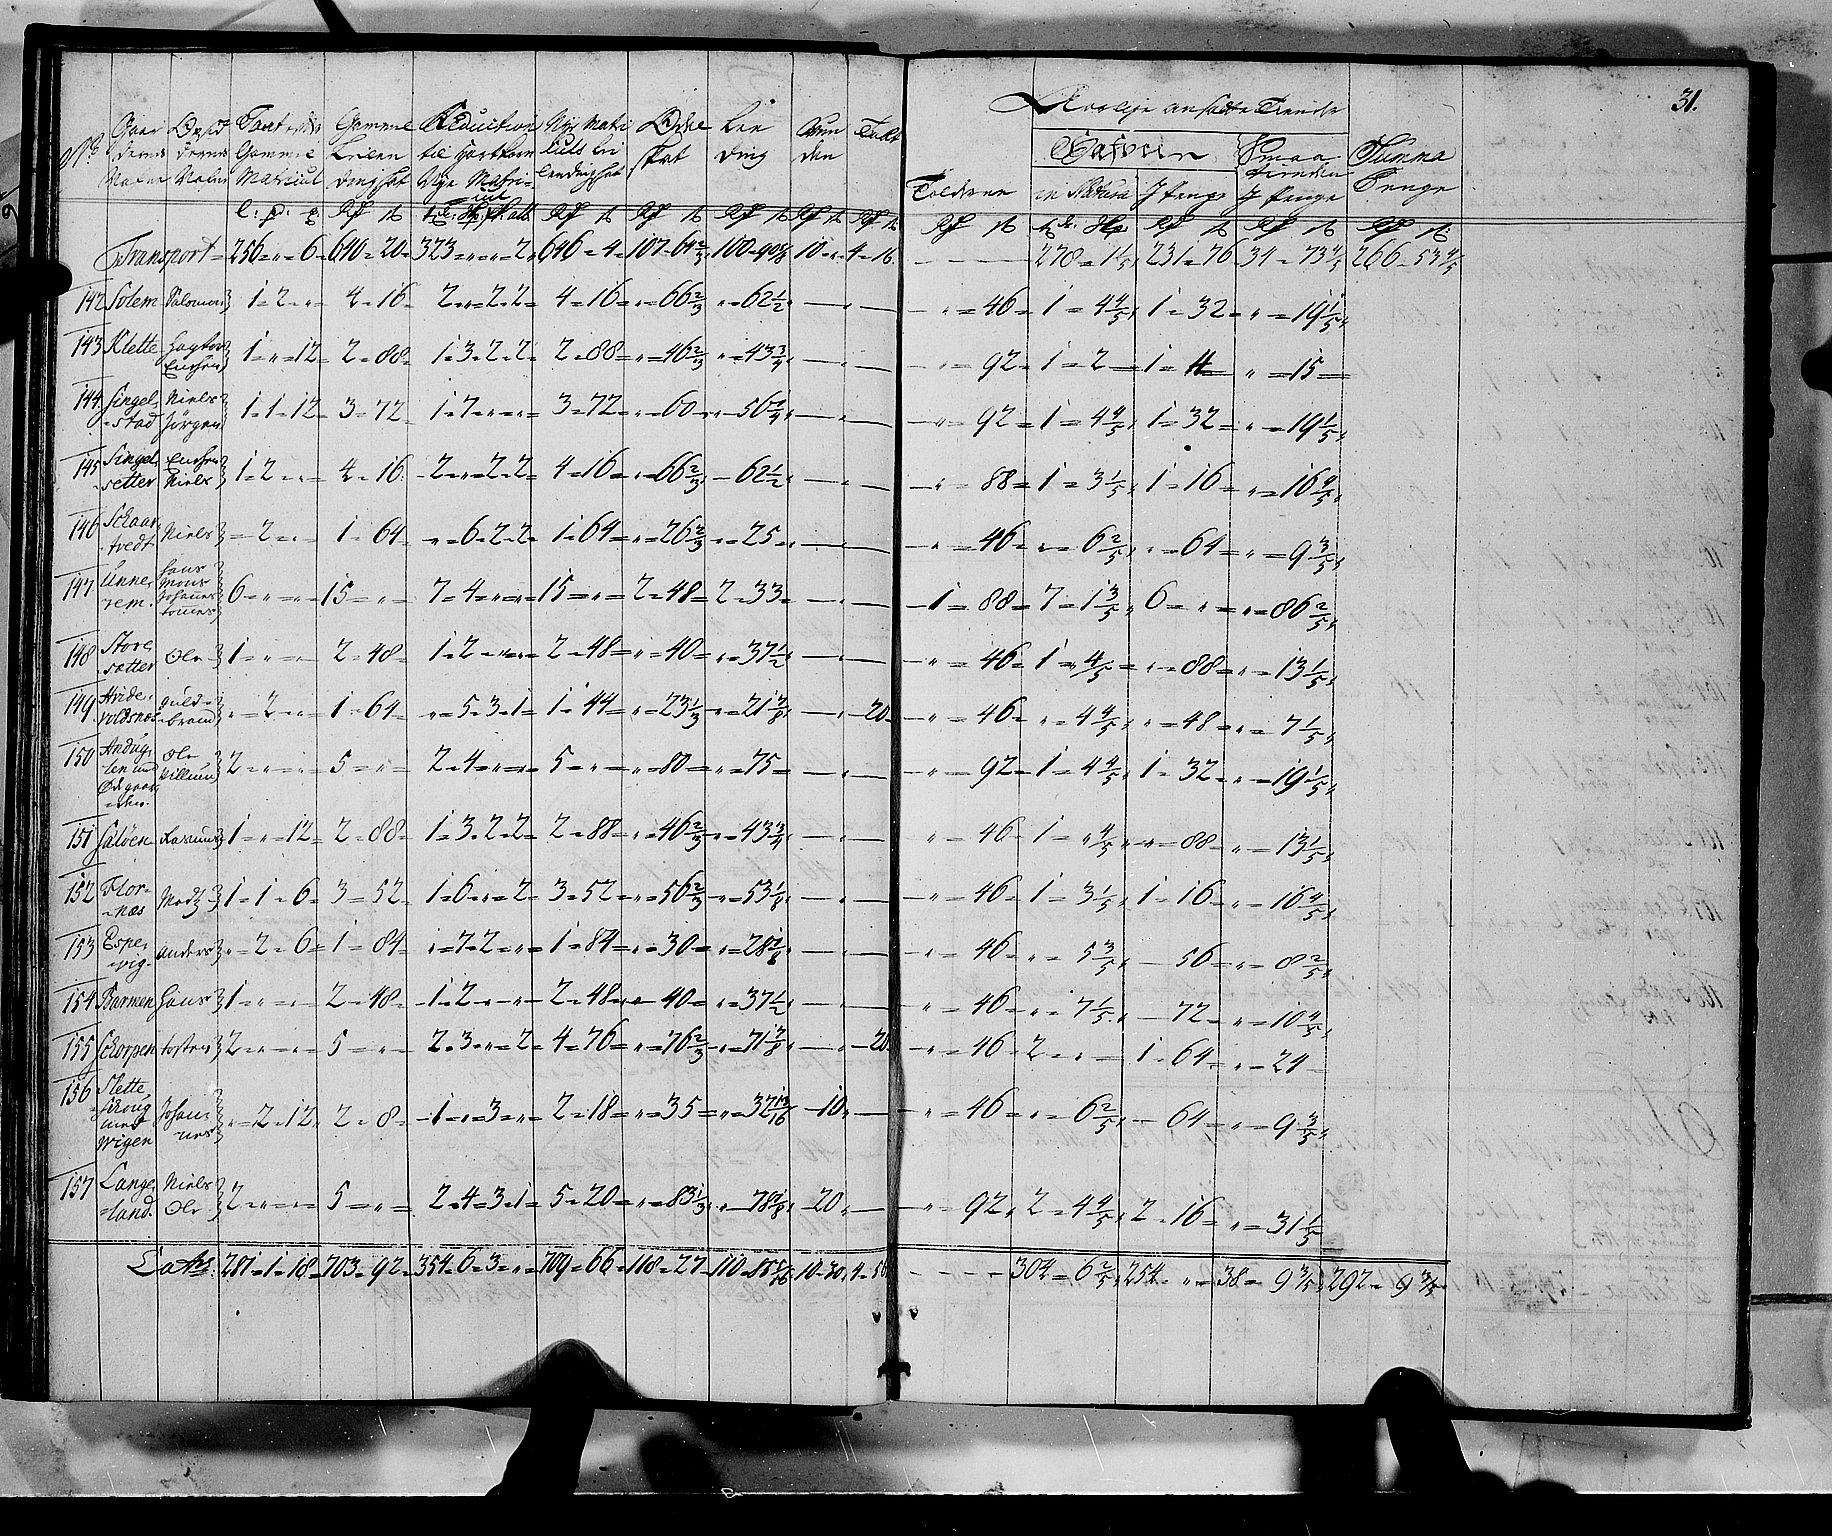 31.
No Gaardernes Navne Opsid dernes Navne Gammel Matricul Gamme Leilendingskat Reduction til Hartkorn Nye Matricul Nye Matriculs Leilendingskat Odel skat Leding Taxt
Tolderne Aarlige ansatte Tiende Hafveren in Natura I Penge Smaa tienden I Penge Summa Penge
Transport = 256 = " = 6 = 640 = 20 = 323 = " = " = 2 = 646 = 4 = 107 = 64 2/3 100 = 90 10 = " = 4 = 16 278 = 1 1/5 231 = 76 34 = 73 4/5 266 = 53 4/5
142 Solem 1 = 2 = " = 4 = 16 = 2 = " = 2 = 2 = 4 = 16 = " = 66 2/3 " = 62 1/2 " = 46 = 1 = 4 4/5 1 = 32 = " = 19 1/5
143 Klette 1 = " = 12 = 2 = 88 = 1 = 3 = 2 = 2 = 2 = 88 = " = 46 2/3 " = 43 3/4 " = 92 = 1 = 2 = 1 = 4 " = 15
144 Singelstad Niels Jørgen 1 = 1 = 12 = 3 = 72 = 1 = 7 = " = " = 3 = 72 = " = 60 = " = 56 1/4 " = 92 = 1 = 4 4/5 1 = 32 = " = 19 1/5
145 Singelsetter Niels 1 = 2 = " = 4 = 16 = 2 = " = 2 = 2 = 4 = 16 = " = 66 2/3 = 62 1/2 " = 88 = 1 = 3 1/5 1 = 16 = " = 16 4/5
146 Niels = 2 = " = 1 = 64 = " = 6 = 2 = 2 = 1 = 64 = " = 26 2/3 " = 25 = " = 46 = " = 6 2/5 " = 64 = " = 9 3/5
147 Hans Mons Johannes 6 = " = " = 15 = " = 7 = 4 = " = " = 15 = " = 2 = 48 = 2 = 33 = 1 = 88 = 7 = 1 3/5 6 = " = " = 86 2/5
148 Storesætter Ole 1 = " = " = 2 = 48 = 1 = 2 = " = " = 2 = 48 = " = 40 = " = 37 1/2 " = 46 = 1 = " 4/5 = " = 88 = " = 13 1/5
149 Guldbrand " = 2 = " = 1 = 64 = " = 5 = 3 = 1 = 1 = 44 = " = 23 1/3 " = 21 7/8 20 " = 46 = " = 4 4/5 " = 48 = " = 7 1/5
150 Ole Villum 2 = " = " = 5 = " = 2 = 4 = " = " = 5 = " = " = 80 = " = 75 = " = 92 = 1 = 4 4/5 1 = 32 = " = 19 1/5
151 Rasmus 1 = " = 12 = 2 = 88 = 1 = 3 = 2 = 2 = 2 = 88 = " = 46 2/3 " = 43 3/4 " = 46 = 1 = " 4/5 " = 88 = " = 13 1/5
152 Flornæs Madz 1 = 1 = 6 = 3 = 52 = 1 = 6 = " = 2 = 3 = 52 = " = 56 2/3 " = 53 1/8 " = 46 = 1 = 3 1/5 1 = 16 = " = 16 4/5
153 Espevig Anders " = 2 = 6 = 1 = 84 = " = 7 = 2 = " = 1 = 84 = " = 30 = " = 28 1/8 " = 46 = " = 5 3/5 56 = " = 8 2/5
154 Barmen Hans 1 = " = " = 2 = 48 = 1 = 2 = " = " = 2 = 48 = " = 40 = " = 37 1/2 " = 46 = " = 7 1/5 72 = " = 10 4/5
155 Schorpen 2 = " = " = 5 = " = 2 = 3 = " = 2 = 4 = 76 = " = 76 2/3 " = 71 7/8 20 " = 46 = 2 = " = 1 = 64 = " = 24
156 Slette Johannes " = 2 = 12 = 2 = 8 = 1 = " = 3 = " = 2 = 18 = " = 35 = " = 32 13/16 10 " = 46 = " = 6 2/5 64 = " = 9 3/5
157 Langeland Niels Ole 2 = " = " = 5 = " = 2 = 4 = 3 = 1 = 5 = 20 = " = 83 1/3 " = 78 1/8 20 " = 92 = 2 = 4 4/5 2 = 16 = " = 31 1/5
Latus 281 = 1 = 18 = 703 = 92 = 354 = 6 = 3 = " = 709 = 66 = 118 = 27 110 10 = 30 4 = 56 304 = 6 2/5 254 = " = 38 = 9 3/5 292 = 9 3/5